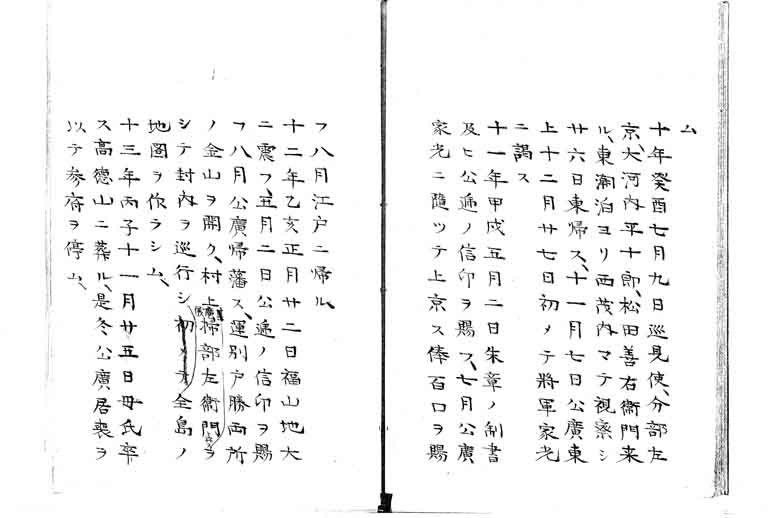 ム
十年癸酉七月九日巡見使、分部左
京、大河内平十郎、松田善右衞門来
ル、東潮泊ヨリ西茂内マテ視察シ
廿六日東帰ス、十一月七日公廣東
上十二月廿七日初メテ将軍家光
ニ謁ス
十一年甲戌五月二日朱章ノ制書
及ヒ公逓ノ信印ヲ賜フ、七月公廣
家光ニ隨ツテ上京ス俸百口ヲ賜
フ八月江戸ニ帰ル、
十二年乙亥正月廿二日福山地大
ニ震フ、五月二日公逓ノ信印ヲ賜
フ八月公廣帰藩ス、運別戸勝両所
ノ金山ヲ開ク、村上掃部左衞門ヲ
シテ封内ヲ巡行シ初メテ全島ノ
地圖ヲ作ラシム、
十三年丙子十一月廿五日母氏卒
ス高德山ニ葬ル、是冬公廣居喪ヲ
以テ参府ヲ停ム、